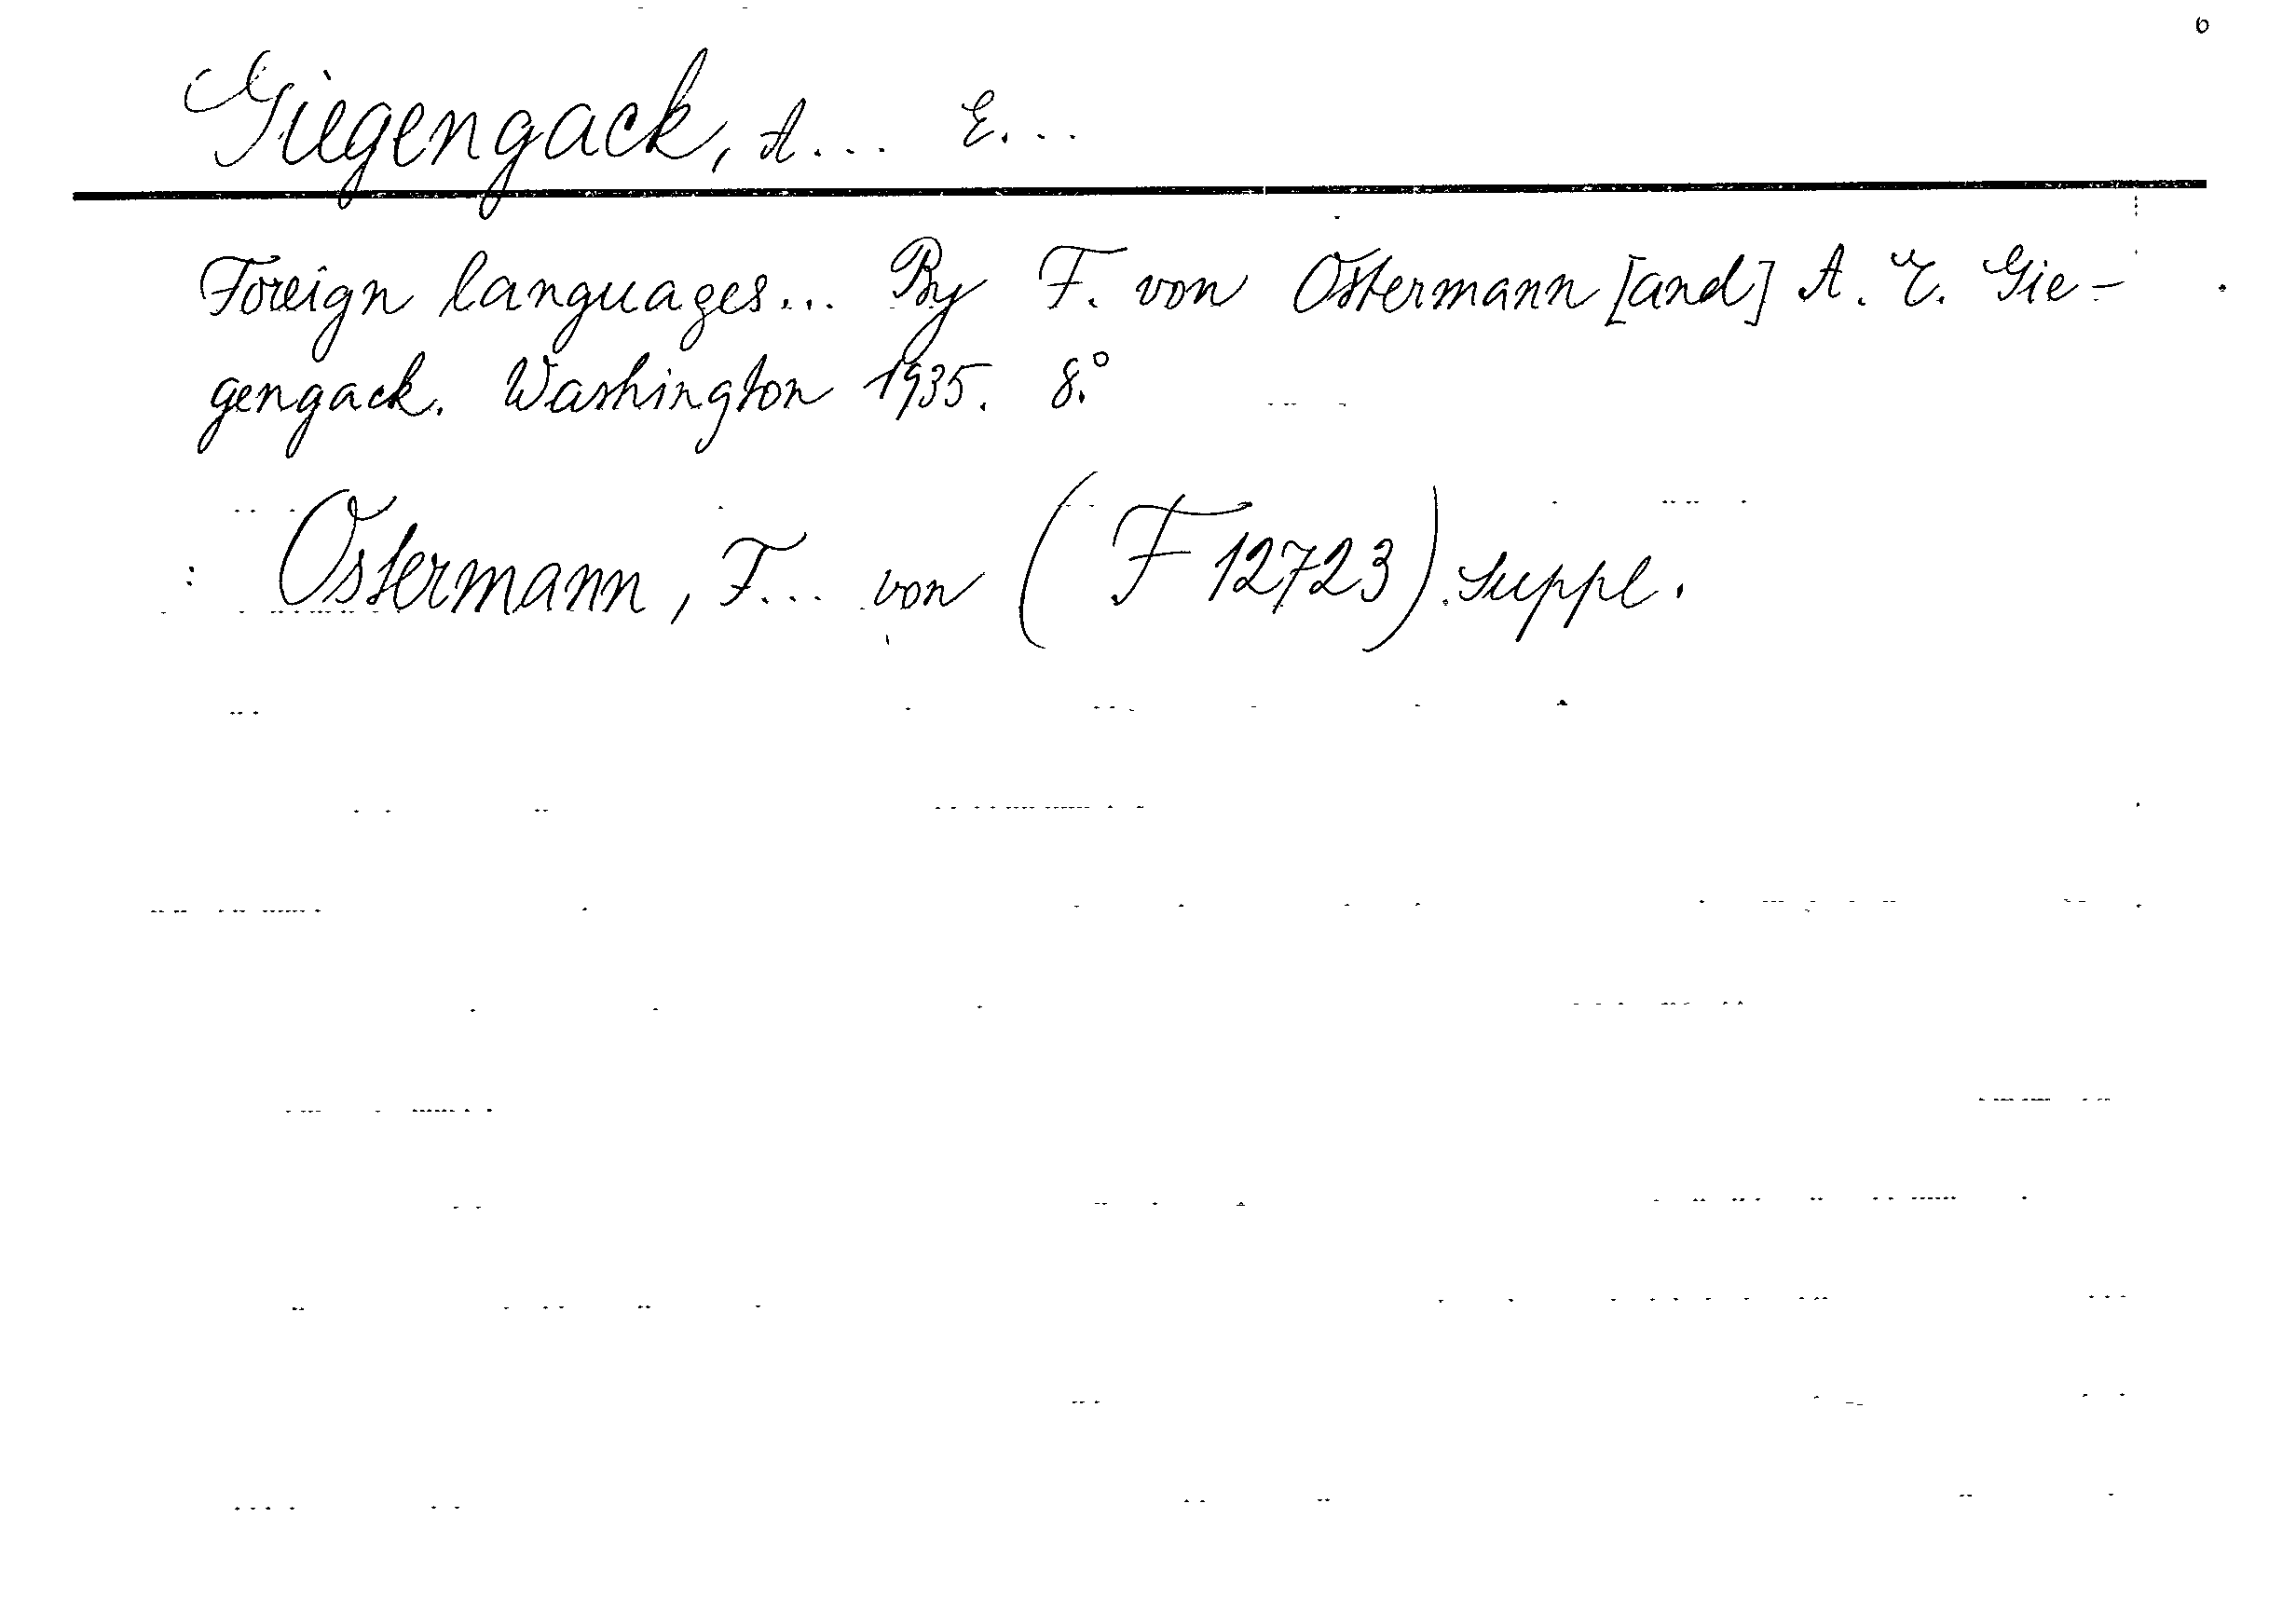 6
Giegengack, A... E...
Foreign languages... By F. von Ostermann [and] A. E. Gie-
gengack. Washington 1935. 8.°
: Ostermann, F... von (F 12723) Suppl.